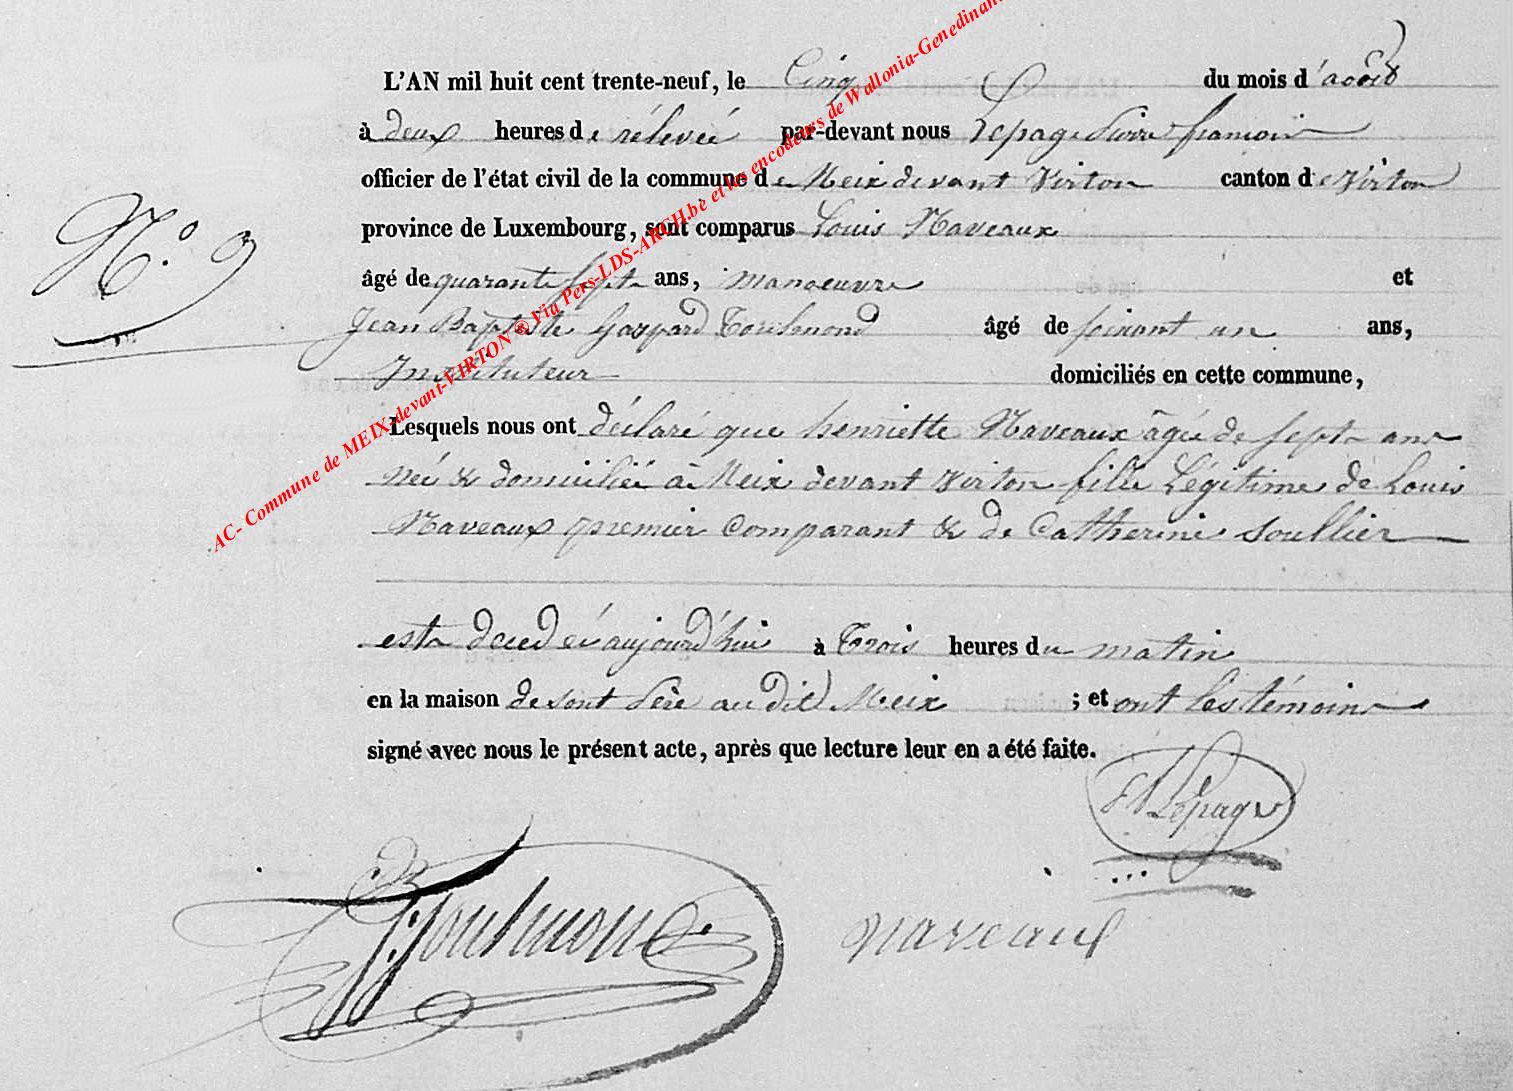 L'AN mil huit cent trente-neuf, le Cinq du mois d'août
à deux heures de rélevée par-devant nous Lepage Pierre françois
officier de l'état civil de la commune de Meix devant Virton canton de Virton
province de Luxembourg, sont comparus Louis Naveaux
N.° 9
âgé de quarante sept ans, manoeuvre et
Jean Baptiste Gaspard Toulmond âgé de soixant un ans,
Instituteur domiciliés en cette commune,
Lesquels nous ont déclaré que henriette Naveaux âgée de sept ans
née & domiciliée à Meix devant Virton fille Légitime de Louis
Naveaux premier Comparant & de Catherine Soullier
est décédée aujourd'hui à Trois heures du matin
en la maison de sont Père au dit Meix ; et ont les témoins
signé avec nous le présent acte, après que lecture leur en a été faite.
Lepage
Toulmond
naveaux
AC- Commune de MEIX-devant-VIRTON ® Via Pers-LDS-ARCH.be et les encodeurs de Wallonia-Genedinant